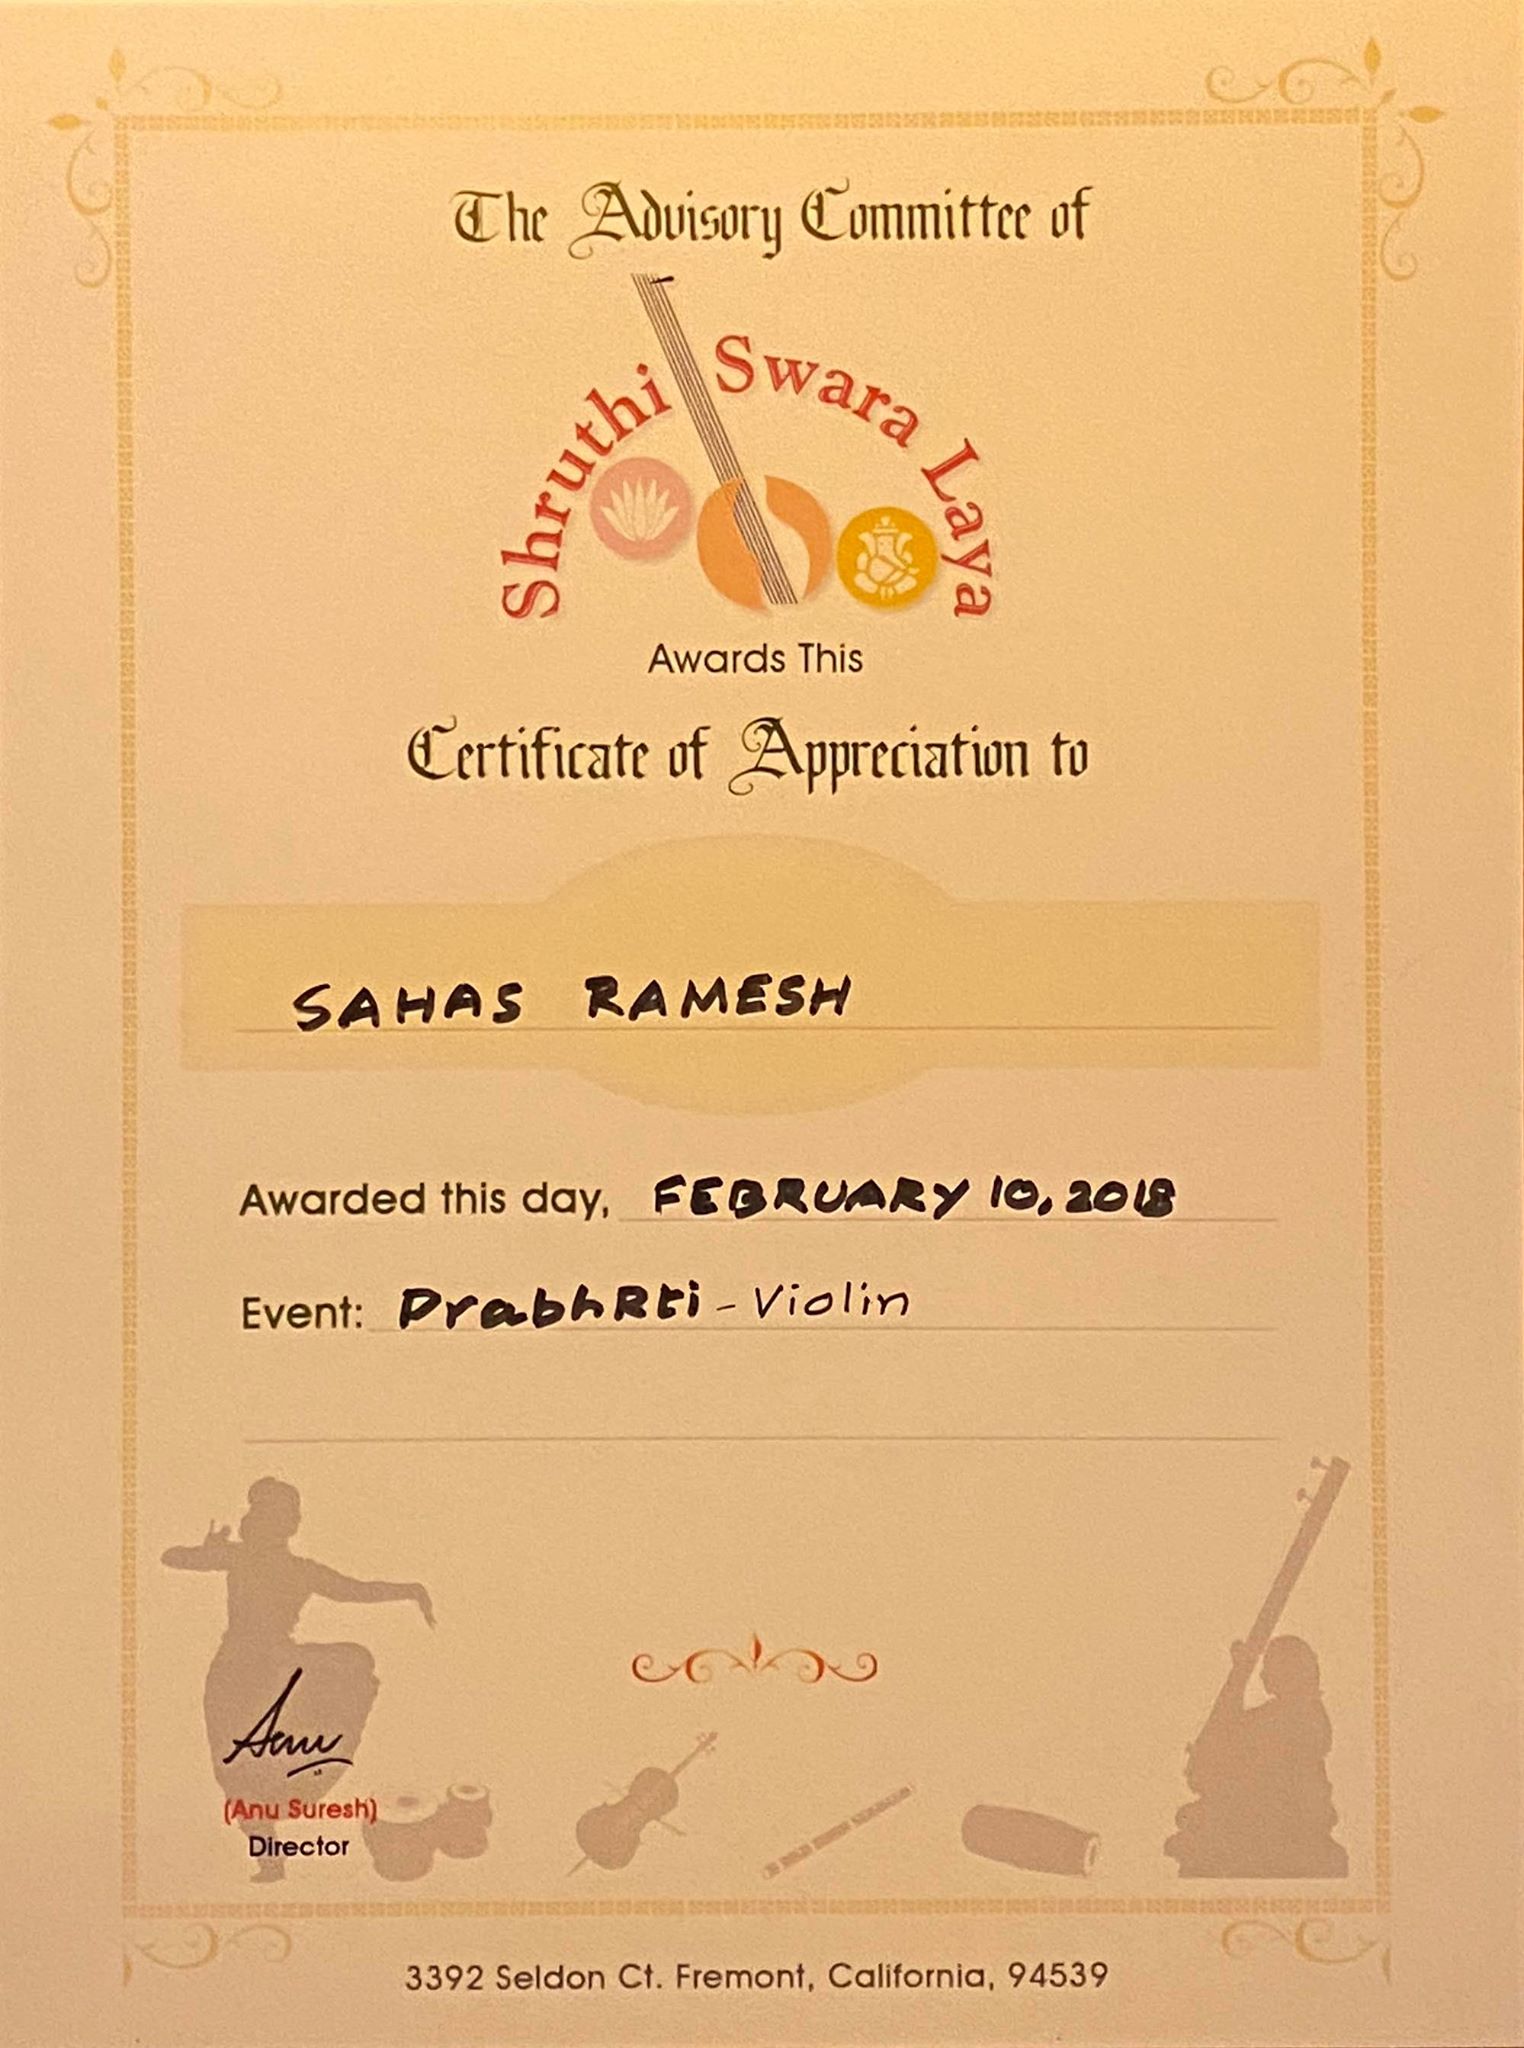 The Advisory Committee of
Shruthi Swara Laya
Awards This
Certificate of Appreciation to
SAHAS RAMESH
Awarded this day, FEBRUARY 10, 2018
Event: PrabhRti - Violin
Anu
(Anu Suresh)
Director
3392 Seldon Ct. Fremont, California, 94539